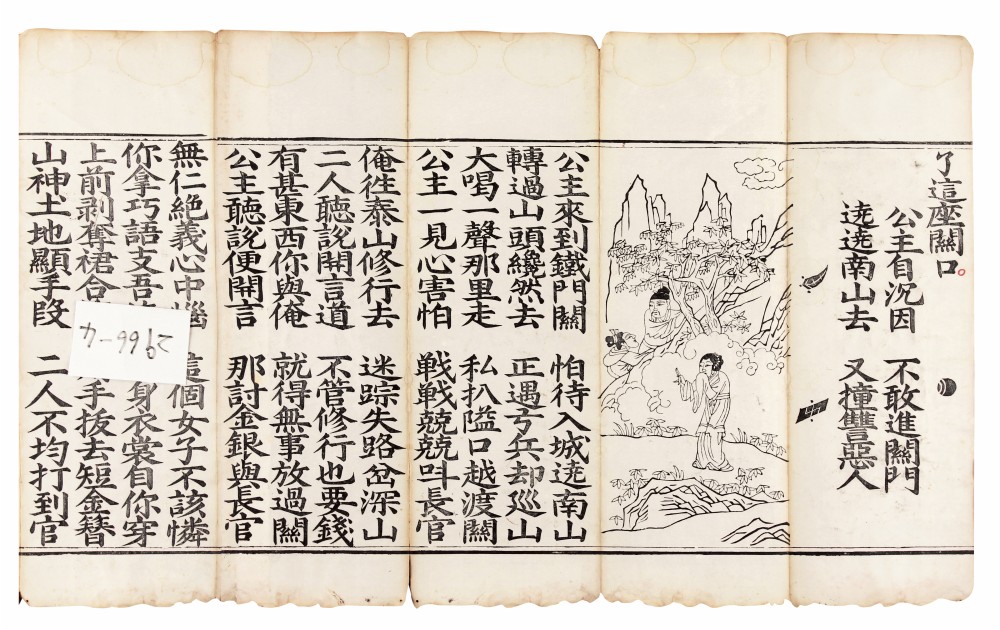 了這座關口
公主自沉因 不敢進關門
遶遶南山去 又撞讐惡人
公主來到鐵門關 怕待入城遶南山
轉過山頭纔然去 正遇弓兵却巡山
大喝一聲那里走 私扒隘口越渡關
公主一見心害怕 戰戰兢兢呌長官
俺徃泰山修行去 迷踪失路岔深山
二人聽說開言道 不管修行也要錢
有甚東西你與俺 就得無事放過關
公主聽說便開言 那討金銀與長官
無仁絕義心中惱 這個女子不該憐
你拿巧語支吾 身衣裳自你穿
上前剥奪裙合 手拔去短金簪
山神土地顯手段 二人不均打到官
2966-4